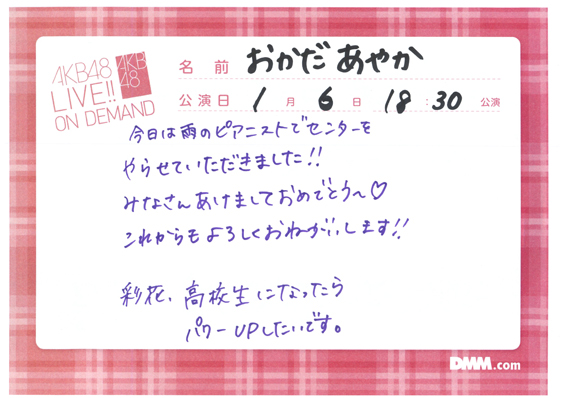 AKB48
LIVE!!
ON DEMAND
AKB
48
名前 おかだあやか
公演日 1月6日 18:30公演
今日は雨のピアニストでセンターを
やらせていただきました!!
みなさんあけましておめでとう〜♡
これからもよろしくおねがいします!!
彩花、高校生になったら
パワーUPしたいです。
DMM.com